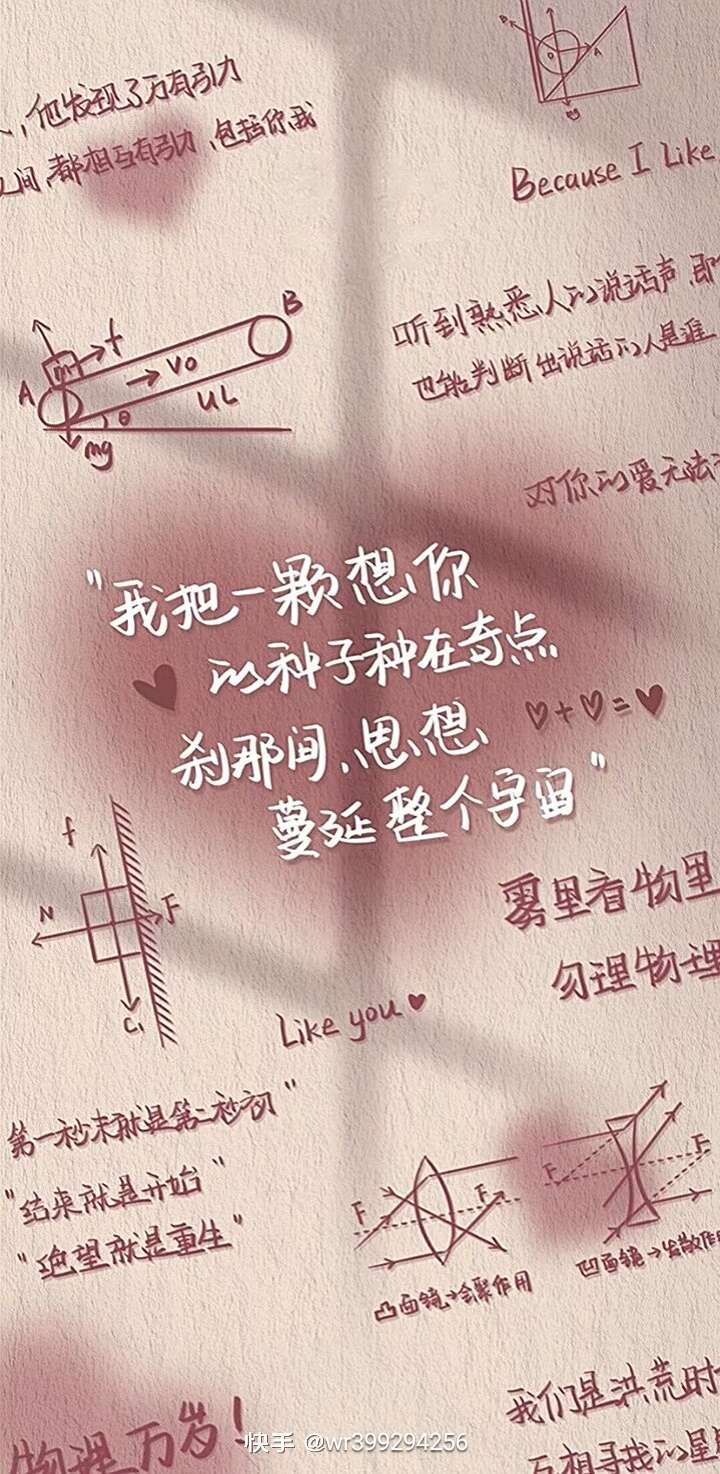 他发现了万有引力
间，都相互有引力，包括你我
Because I Like
听到熟悉人的说话声，即
也能判断出说话的人是谁
对你的爱无法
B
f
m
A
V0
UL
θ
mg
"我把一颗想你
的种子种在奇点
刹那间，思想
♡+♡=♥
蔓延整个宇宙"
f
N
F
G
雾里看物里
勿理物理
Like you ♥
第一秒末就是第二秒初"
"结束就是开始"
"绝望就是重生"
F F
F F
凸面镜→会聚作用
凹面镜→发散作用
我们是洪荒时
互相寻找的星
物理万岁！
快手 @wr399294256